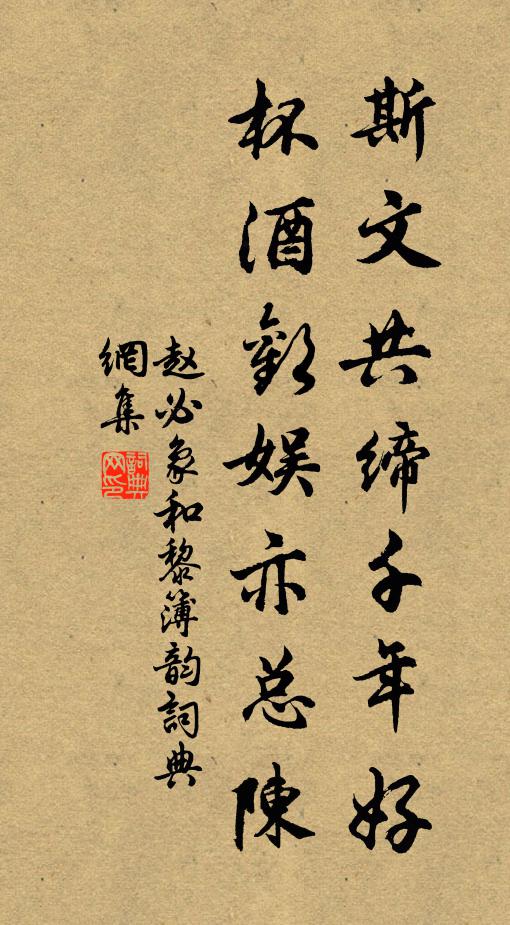 斯文共缔千年好
杯酒歡娱亦总陳
赵必象和黎簿韵詞典
網集
詞典
网印